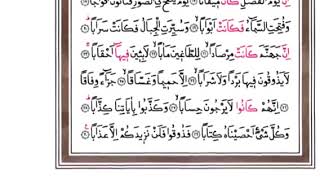 إِنَّ يَوْمَ الْفَصْلِ كَانَ مِيقَاتًا ١٧ يَوْمَ يُنفَخُ فِي الصُّورِ فَتَأْتُونَ أَفْوَاجًا ١٨
وَفُتِحَتِ السَّمَاءُ فَكَانَتْ أَبْوَابًا ١٩ وَسُيِّرَتِ الْجِبَالُ فَكَانَتْ سَرَابًا ٢٠
إِنَّ جَهَنَّمَ كَانَتْ مِرْصَادًا ٢١ لِلطَّاغِينَ مَآبًا ٢٢ لَابِثِينَ فِيهَا أَحْقَابًا ٢٣
لَا يَذُوقُونَ فِيهَا بَرْدًا وَلَا شَرَابًا ٢٤ إِلَّا حَمِيمًا وَغَسَّاقًا ٢٥ جَزَاءً وِفَاقًا
٢٦ إِنَّهُمْ كَانُوا لَا يَرْجُونَ حِسَابًا ٢٧ وَكَذَّبُوا بِآيَاتِنَا كِذَّابًا ٢٨
وَكُلَّ شَيْءٍ أَحْصَيْنَاهُ كِتَابًا ٢٩ فَذُوقُوا فَلَن نَّزِيدَكُمْ إِلَّا عَذَابًا ٣٠